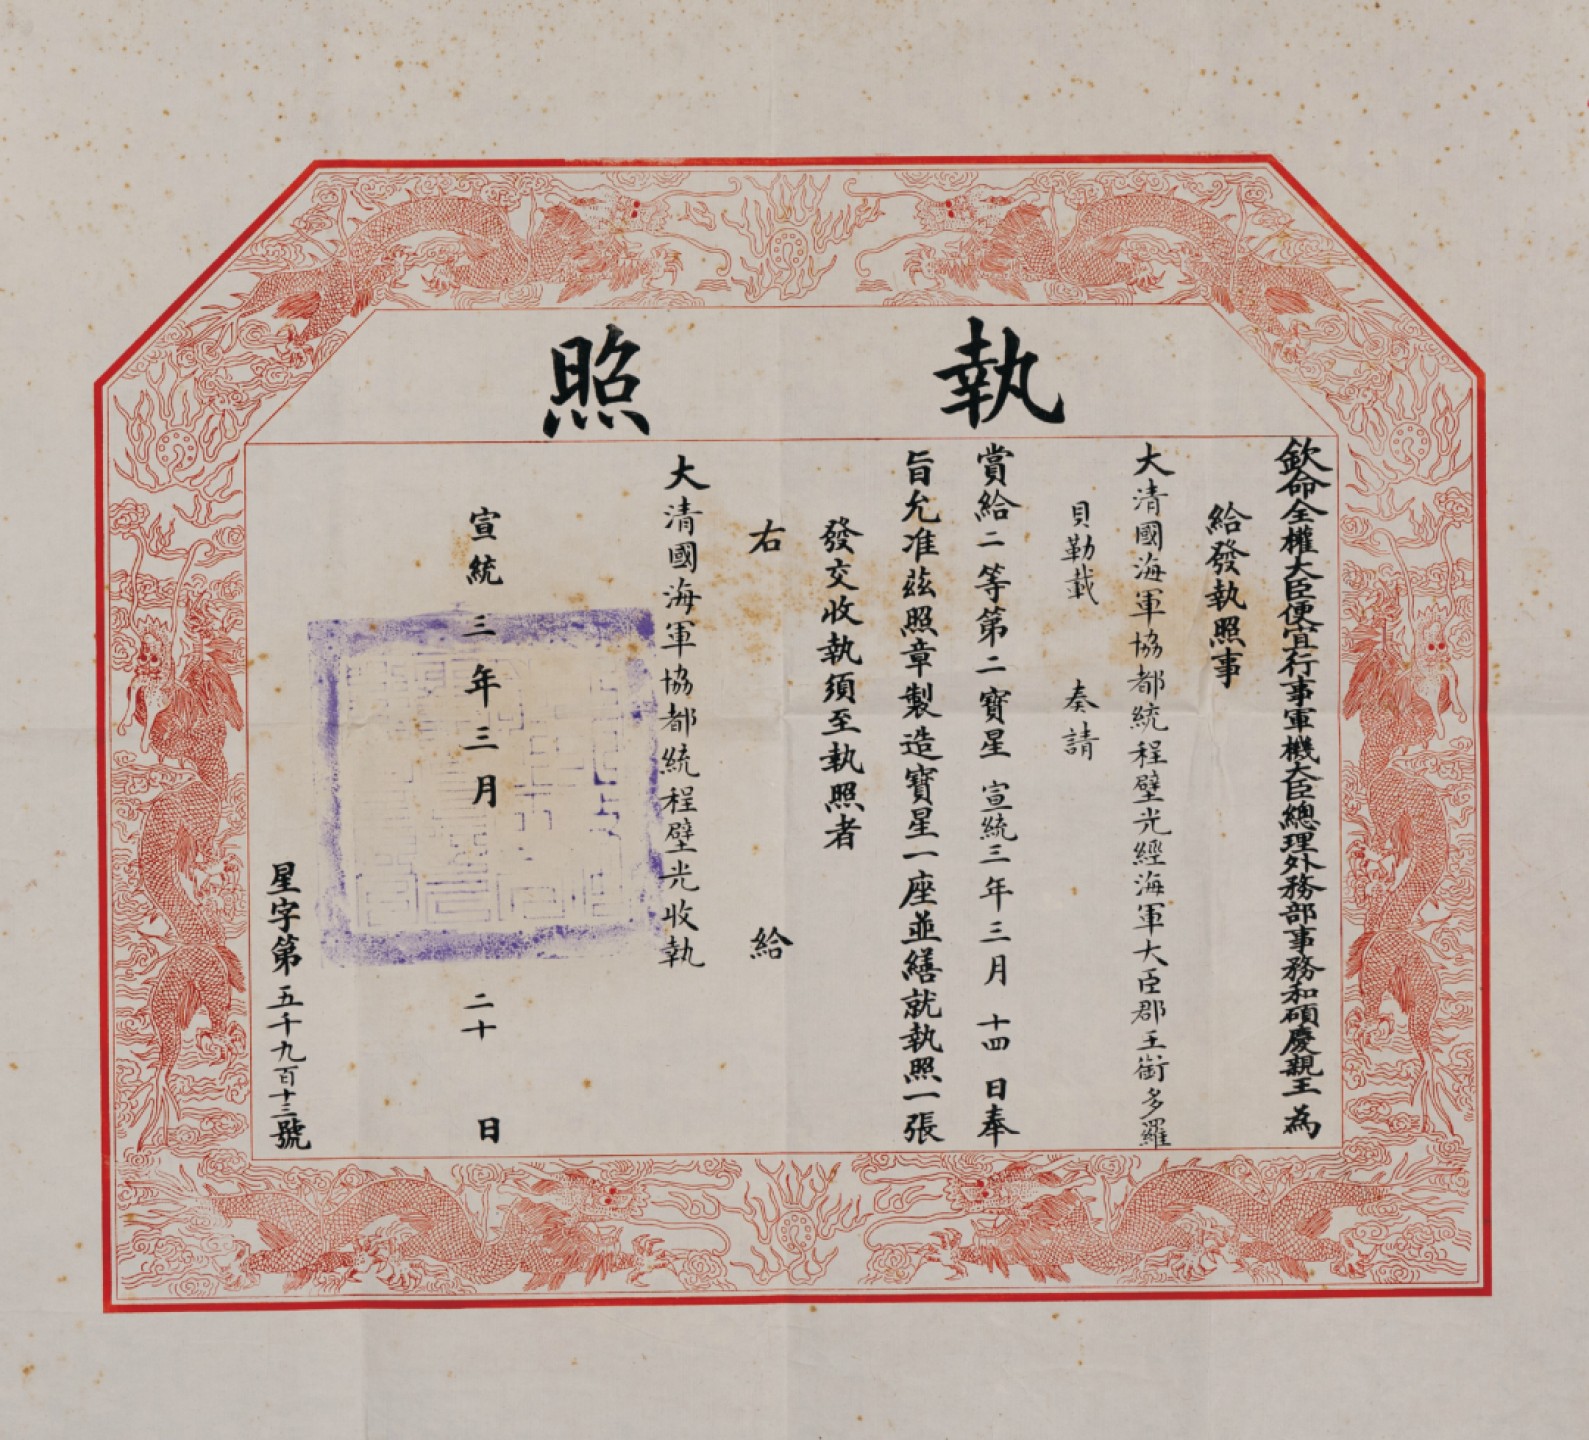 執照
欽命全權大臣便宜行事軍機大臣總理外務部事務和碩慶親王為
給發執照事
大清國海軍協都統程璧光經海軍大臣郡王銜多羅
貝勒載 奏請
賞給二等第二寶星宣統三年三月十四日奉
旨允准茲照章製造寶星一座並繕就執照一張
發交收執須至執照者
右 給
大清國海軍協都統程璧光收執
宣統三年三月二十日
星字第五千九百十三號